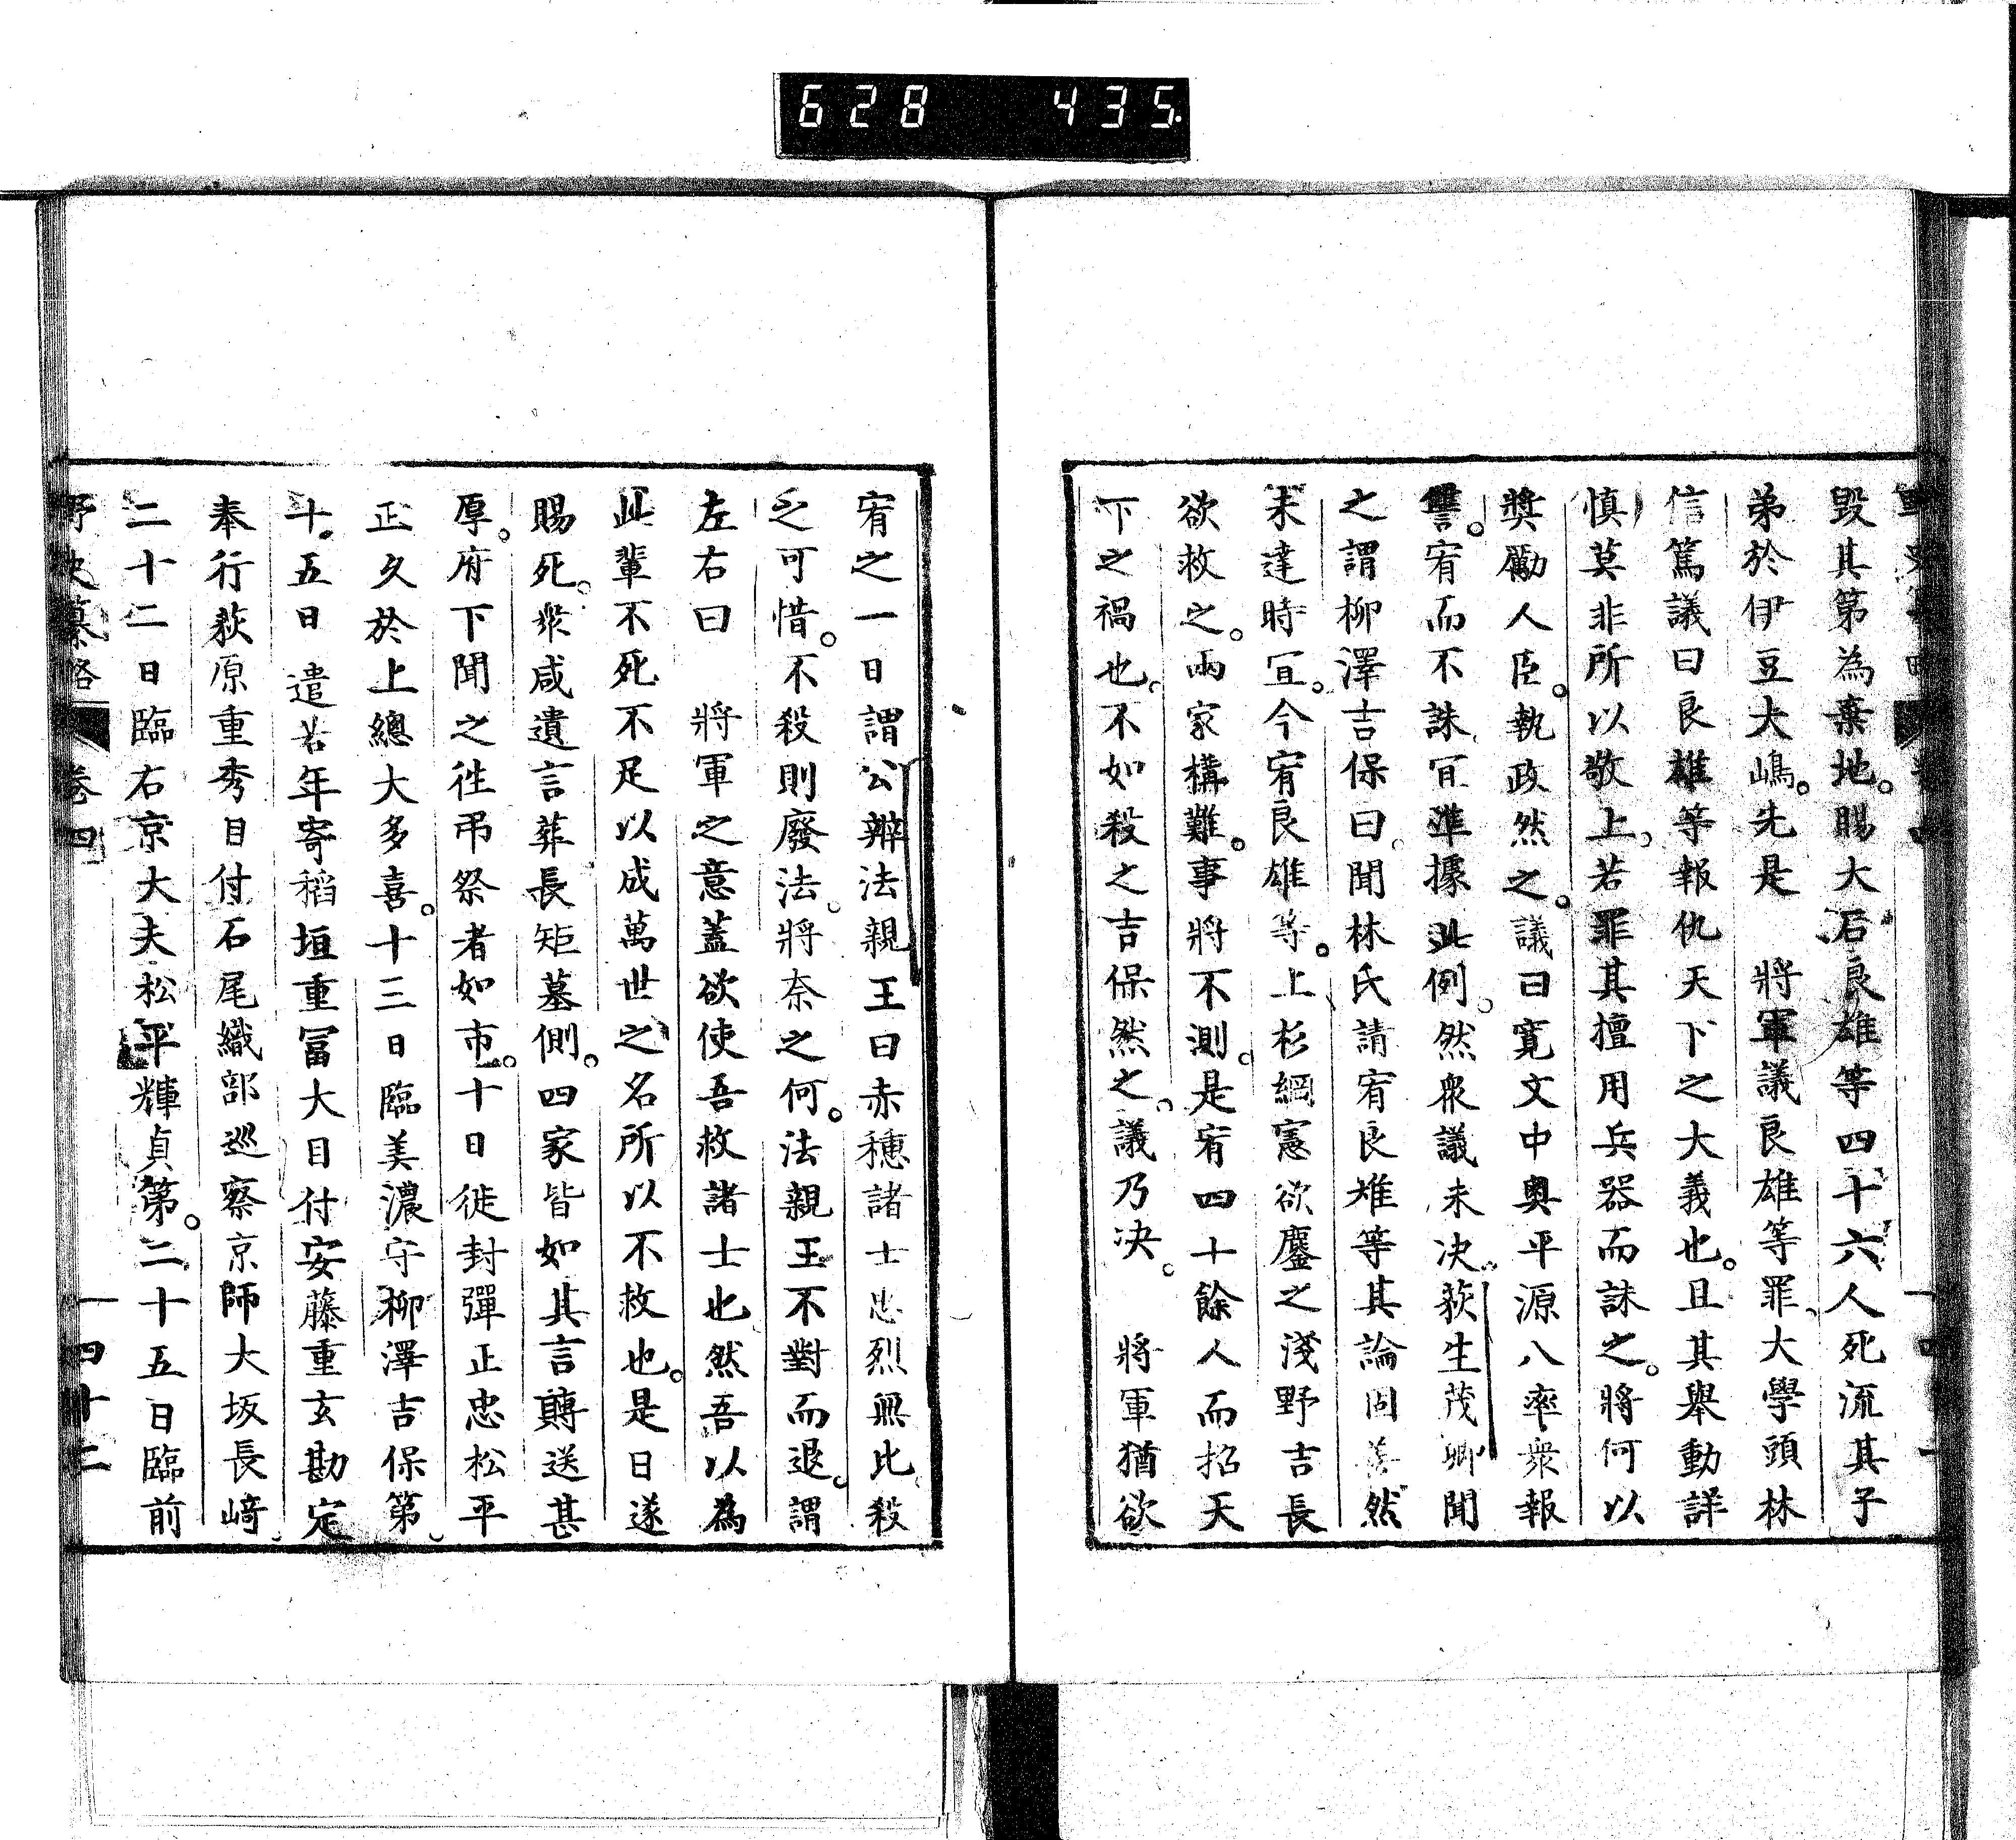 628 435.
毀其第為棄地。賜大石良雄等四十六人死流其子
弟於伊豆大嶋。先是　將軍議良雄等罪、大學頭林
信篤議曰良雄等報仇天下之大義也。且其舉動詳
慎莫非所以敬上。若罪其擅用兵器而誅之。將何以
獎勵人臣。執政然之。議曰寛文中奥平源八率衆報
讐。宥而不誅宜準據此例。然衆議未决。荻生茂卿聞
之謂柳澤吉保曰。聞林氏請宥良雄等其論固善然
未達時宜。今宥良雄等。上杉綱憲欲鏖之淺野吉長
欲救之。兩家構難。事將不測。是宥四十餘人而招天
下之禍也。不如殺之吉保然之。議乃决。　將軍猶欲
宥之一日謂公辨法親王曰赤穗諸士忠烈無比。殺
之可惜。不殺則廢法。將奈之何。法親王不對而退。謂
左右曰　將軍之意蓋欲使吾救諸士也然吾以為
此輩不死不足以成萬世之名所以不救也。是日遂
賜死。衆咸遺言葬長矩墓側。四家皆如其言賻送甚
厚。府下聞之徃弔祭者如市。十日徙封彈正忠松平
正久於上總大多喜。十三日臨美濃守柳澤吉保第。
十五日　遣若年寄稻垣重冨大目付安藤重玄勘定
奉行荻原重秀目付石尾織部巡察京師大坂長崎。
二十二日臨右京大夫松平輝貞第。二十五日臨前
野史纂略　卷四　一四十二